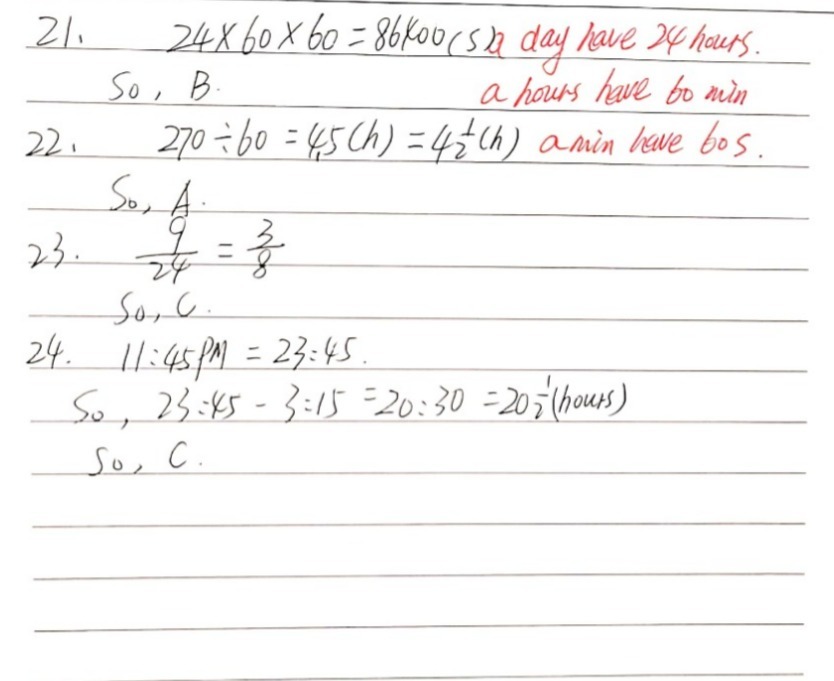 21. 24×60×60=86400(s) a day have 24 hours.
So, B. a hours have 60 min
22. 270÷60=4.5(h)=4 1/2(h) a min have 60 s.
So, A.
23. 9/24 = 3/8
So, C.
24. 11:45PM = 23:45.
So, 23:45 - 3:15 = 20:30 = 20 1/2(hours)
So, C.